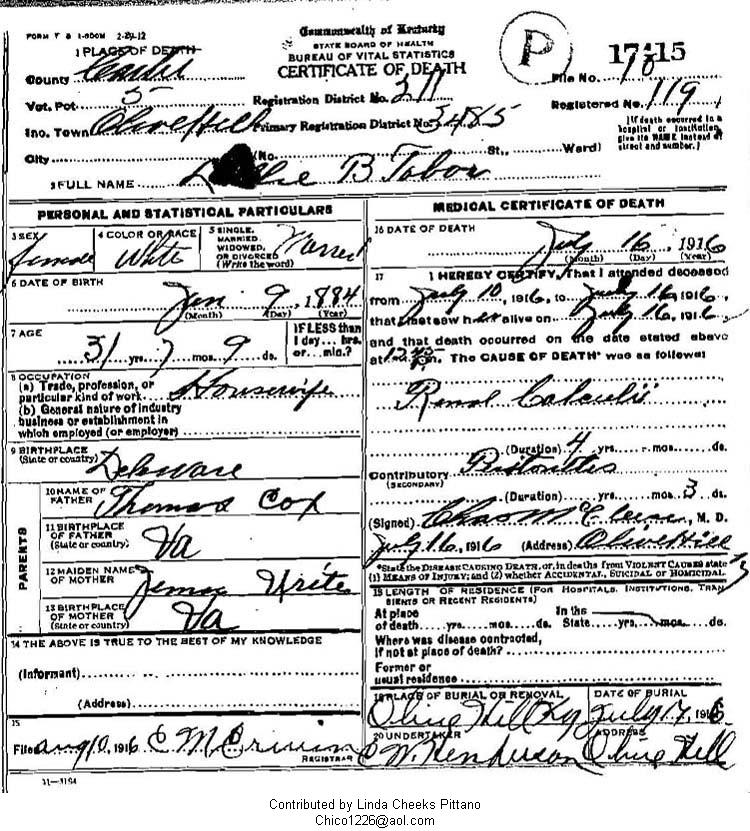 FORM V S 1-500M 2-29-12
Commonwealth of Kentucky
STATE BOARD OF HEALTH
BUREAU OF VITAL STATISTICS
CERTIFICATE OF DEATH
P
17815
1 PLACE OF DEATH
County Carter
File No.
Vot. Pot. 5
Registration District No. 211
Registered No. 119
Inc. Town Olive Hill Primary Registration District No. 3485
(If death occurred in a hospital or institution, give its NAME instead of street and number.)
City (No. St., Ward)
2 FULL NAME B Tabor
PERSONAL AND STATISTICAL PARTICULARS
3 SEX female
4 COLOR OR RACE White
5 SINGLE, MARRIED, WIDOWED, OR DIVORCED (Write the word) Married
6 DATE OF BIRTH
Jan 9, 1884
(Month) (Day) (Year)
7 AGE
31 yrs. 7 mos. 9 ds.
If LESS than 1 day... hrs. or... min.?
8 OCCUPATION
(a) Trade, profession, or particular kind of work Housewife
(b) General nature of industry business or establishment in which employed (or employer)
9 BIRTHPLACE (State or country) Delaware
PARENTS
10 NAME OF FATHER Thomas Cox
11 BIRTHPLACE OF FATHER (State or country) Va
12 MAIDEN NAME OF MOTHER
13 BIRTHPLACE OF MOTHER (State or country) Va
14 THE ABOVE IS TRUE TO THE BEST OF MY KNOWLEDGE
(Informant)
(Address)
15
Filed Aug 10, 1916 E M
REGISTRAR
11-3184
MEDICAL CERTIFICATE OF DEATH
16 DATE OF DEATH
July 16, 1916
(Month) (Day) (Year)
17 I HEREBY CERTIFY, That I attended deceased
from July 10, 1916, to July 16, 1916
that I last saw her alive on July 16, 1916
and that death occurred on the date stated above
at 12:45 m. The CAUSE OF DEATH* was as follows:
Renal Calculii
(Duration) 4 yrs. mos. ds.
Contributory (SECONDARY)
(Duration) yrs. mos. 3 ds.
(Signed) M. D.
July 16, 1916 (Address) Olive Hill
*State the DISEASE CAUSING DEATH, or, in deaths from VIOLENT CAUSES state
(1) MEANS OF INJURY; and (2) whether ACCIDENTAL, SUICIDAL OR HOMICIDAL.
18 LENGTH OF RESIDENCE (FOR HOSPITALS, INSTITUTIONS, TRANSIENTS OR RECENT RESIDENTS)
At place of death yrs. mos. ds. In the State yrs. mos. ds.
Where was disease contracted, If not at place of death?
Former or usual residence
19 PLACE OF BURIAL OR REMOVAL
DATE OF BURIAL
Olive Hill Ky July 17, 1916
20 UNDERTAKER
ADDRESS
W. Henderson Olive Hill
Contributed by Linda Cheeks Pittano
Chico1226@aol.com